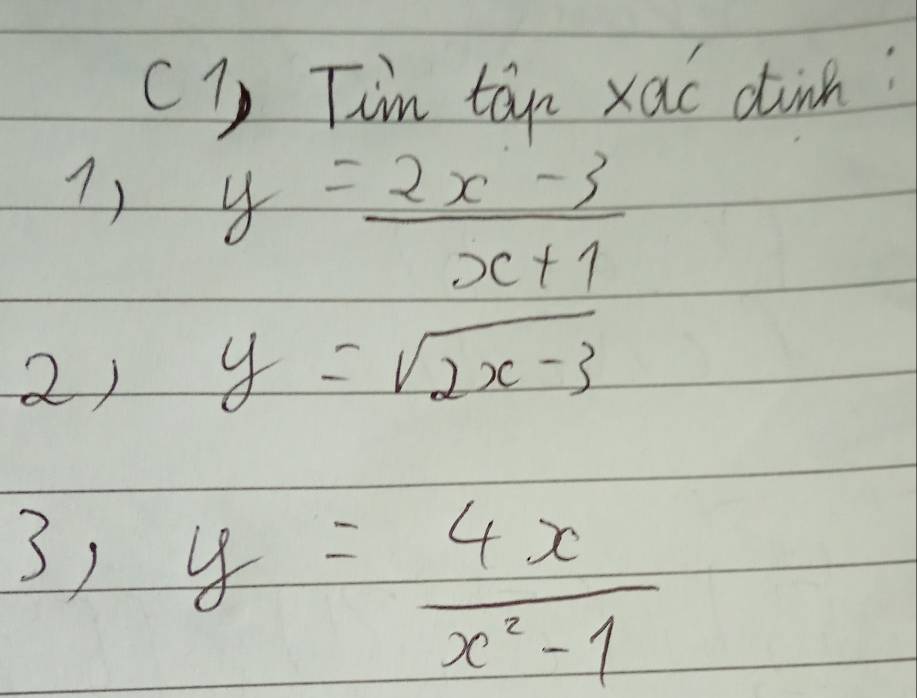 C1, Tìm tập xác định:
1, y = \frac{2x - 3}{x + 1}
2, y = \sqrt{2x - 3}
3, y = \frac{4x}{x² - 1}